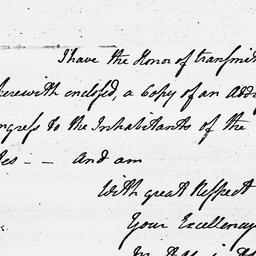 I have the Honor of transmit
herewith enclosed, a Copy of an Addr
ngress to the Inhabitants of the
tes -- And am
With great Respect
Your Excellency